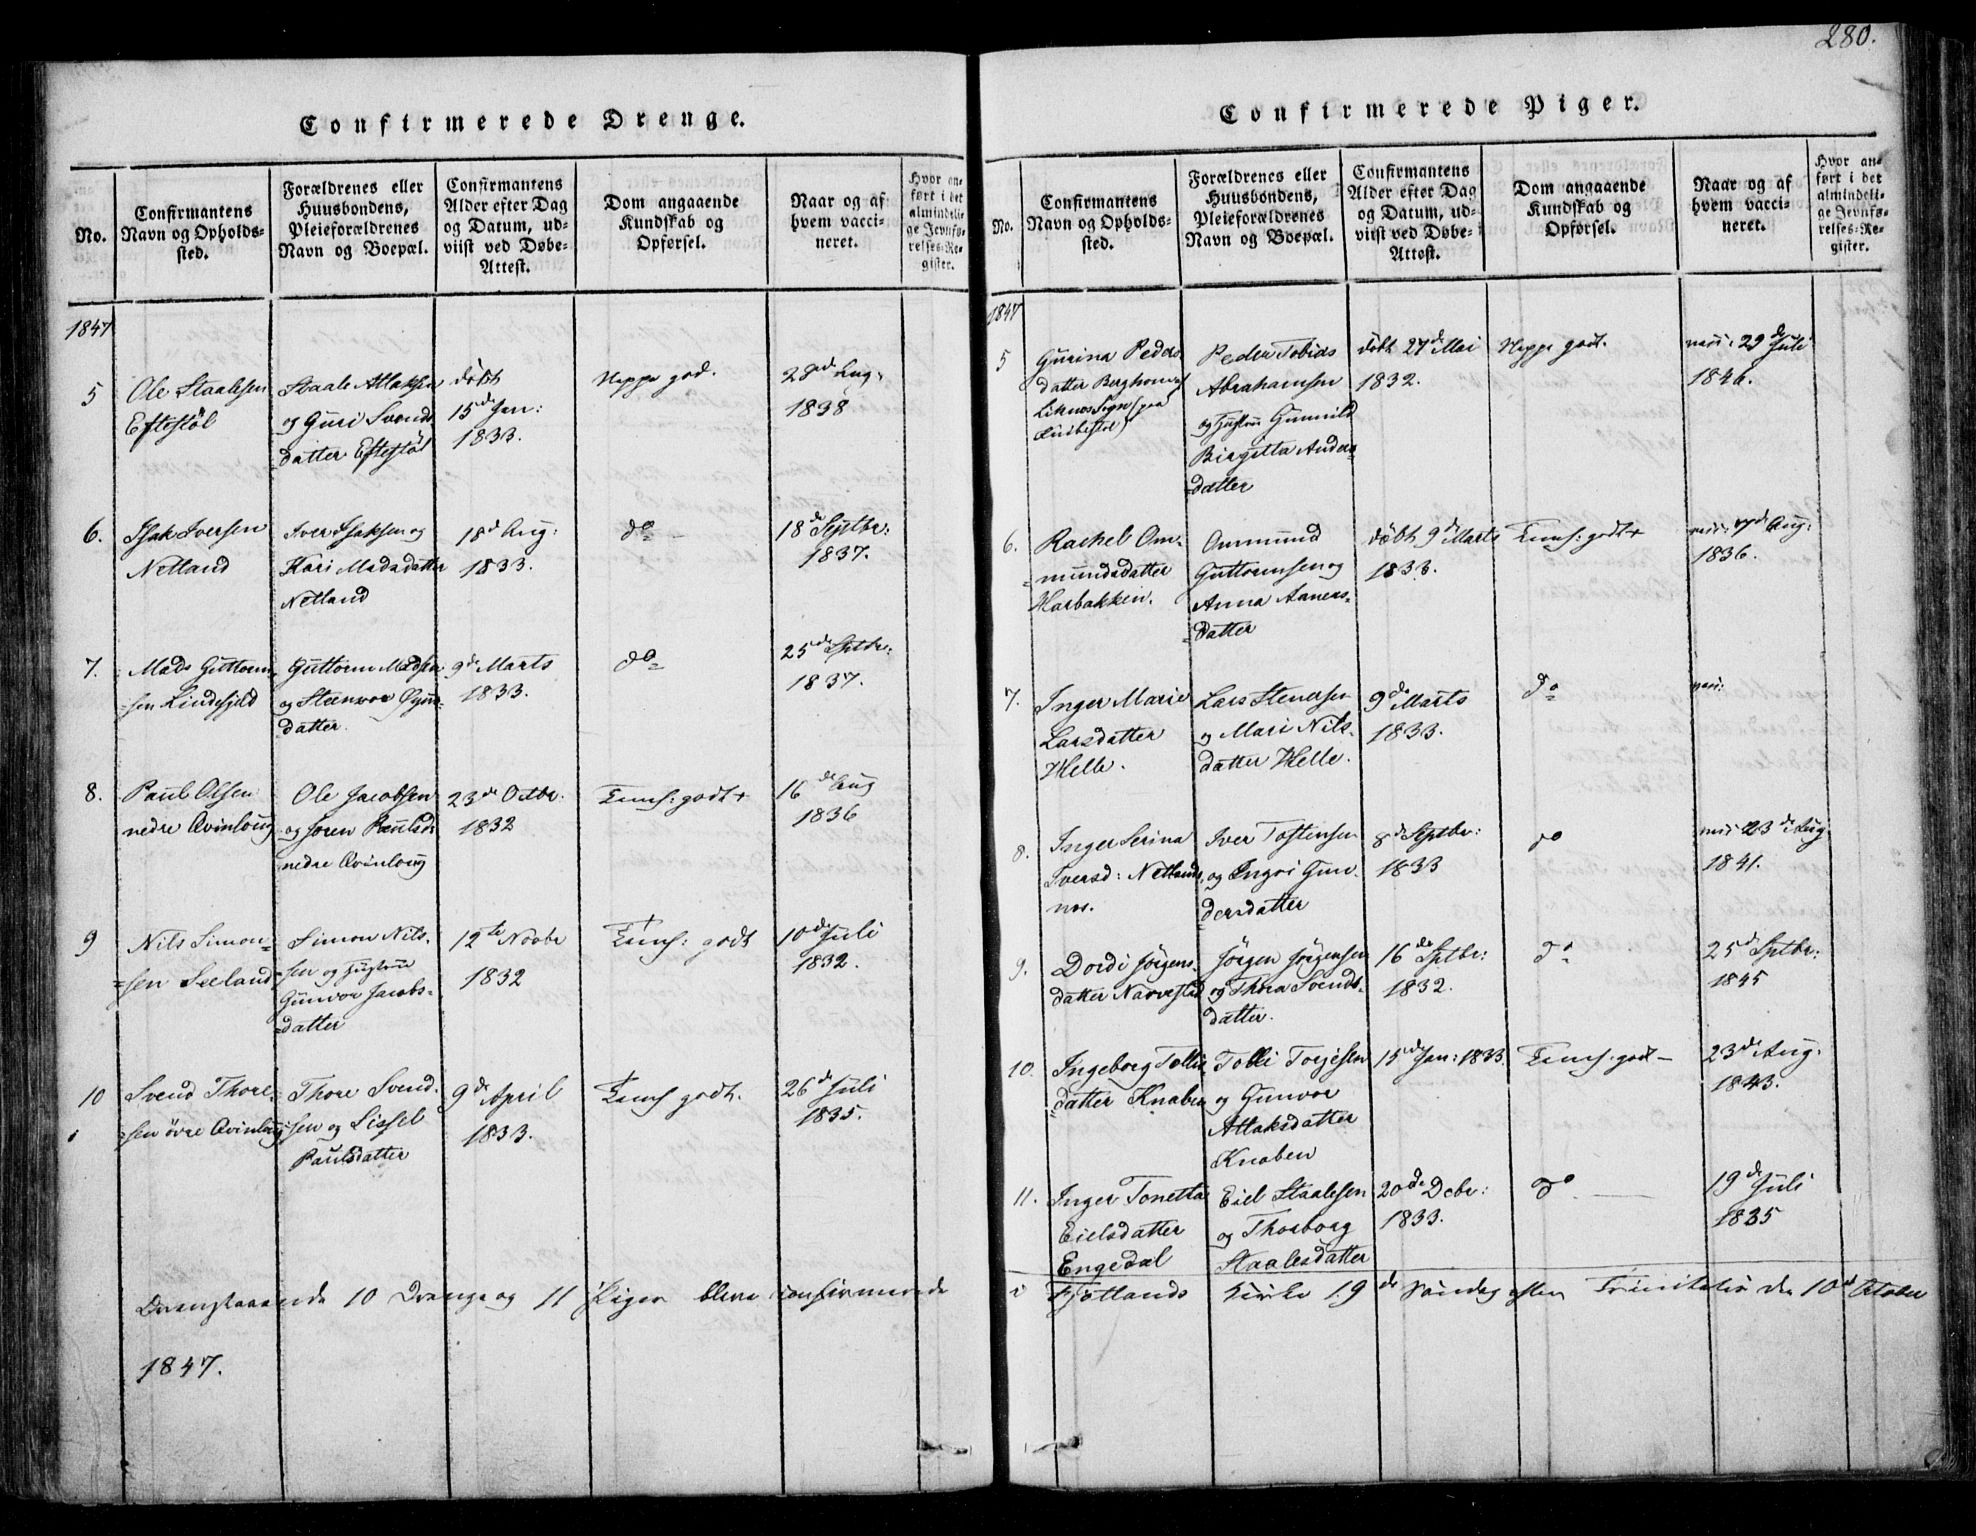 280.
Confirmerede Drenge.
No.
Confirmantens
Navn og Opholds-
sted.
Forældrenes eller
Huusbondens,
Pleieforældrenes
Navn og Boepæl.
Confirmantens
Alder efter Dag
og Datum, ud-
viist ved Døbe-
Attest.
Dom angaaende
Kundskab og
Opførsel.
Naar og af
hvem vacci-
neret.
Hvor an-
ført i det
almindeli-
ge Jevnfø-
relses-Re-
gister.
1847
5
Ole Staalesen
Eftestøl
Staale Atlaksen
og Guri Svends
datter Eftestøl
døbt
15de Jan:
1833.
Neppe god.
28de Aug.
1838
6.
Isak Iversen
Netland
Iver Isaksen og
Kari Madsdatter
Netland
18d Aug:
1833.
do
18de Septbr:
1837.
7.
Mads Guttorm-
sen Lindefjeld
Guttorm Madsen
og Steenvor
datter.
9de Marts
1833.
do
25de Sptbr:
1837.
8.
Paul Olsen
nedre Qvinloug
Ole Jacobsen
og Soren Paulsdr
nedre Qvinloug
23de Octbr:
1832
godt
16de Aug
1836
9
Nils Simon-
sen Seeland
Simon Nils-
sen og Hustru
Gunvor Jacobs-
datter
12te Novbr
1832
godt
10de Juli
1832.
10
Svend Thore-
sen øvre Qvinloug
Thore Svend-
sen og Sissel
Paulsdatter
9de April
1833.
godt.
26de Juli
1835.
Ovenstaaende 10 Drenge og 11 Piger bleve confirmerede
1847.
Confirmerede Piger.
No.
Confirmantens
Navn og Opholds-
sted.
Forældrenes eller
Huusbondens,
Pleieforældrenes
Navn og Boepæl.
Confirmantens
Alder efter Dag
og Datum, ud-
viist ved Døbe-
Attest.
Dom angaaende
Kundskab og
Opførsel.
Naar og af
hvem vacci-
neret.
Hvor an-
ført i det
almindeli-
ge Jevnfø-
relses-Re-
gister.
1847
5
Gurina Peders
datter
Sogn
Peder Tobias
Abrahamsen
og Hustru Gunnild
Birgitta Anders-
datter
døbt 27de Mai
1832.
Neppe godt.
29de Juli
1846.
6.
Rachel Om-
mundsdatter
Harbakken.
Ommund
Guttormsen og
Anna Aaners-
datter
døbt 9de Marts
1833.
godt
7de Aug:
1836.
7.
Inger Marie
Larsdatter
Helle.
Lars Stenersen
og Mari Nils-
datter Helle.
9de Marts
1833.
do
8.
Inger Serina
Iversd: Netlands-
nes.
Iver Tostensen
og Ingri Gun-
dersdatter
8de Septbr:
1833
do
23de Aug
1841.
9.
Dordi Jørgens-
datter Narvestad
Jørgen Jørgensen
og Thora Svends-
datter.
16de Sptbr:
1832.
do
25d Sptbr:
1845
10.
Ingeborg Tollis-
datter Knaben
Tolli Torjesen
og Gunvor
Atlaksdatter
Knaben
15de Jan: 1833.
godt
23de Aug:
1843.
11.
Inger Tonetta
Eielsdatter
Engedal
Eiel Staalesen
og Thorborg
Staalesdatter
20de Debr:
1833.
do
19de Juli
1835
i Fjotlands Kirke 19de Søndag efter Trinitatis den 10d October